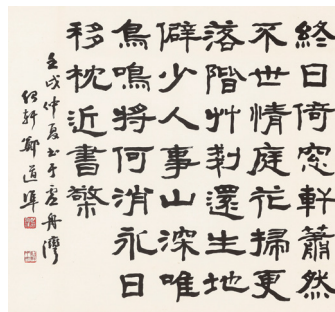 終日倚窓軒蕭然
不世情庭花掃更
落階艸剗還生地
僻少人事山深唯
鳥鳴將何消永日
移枕近書檠
壬戌仲夏書于虛舟灣
紹軒鄭道準